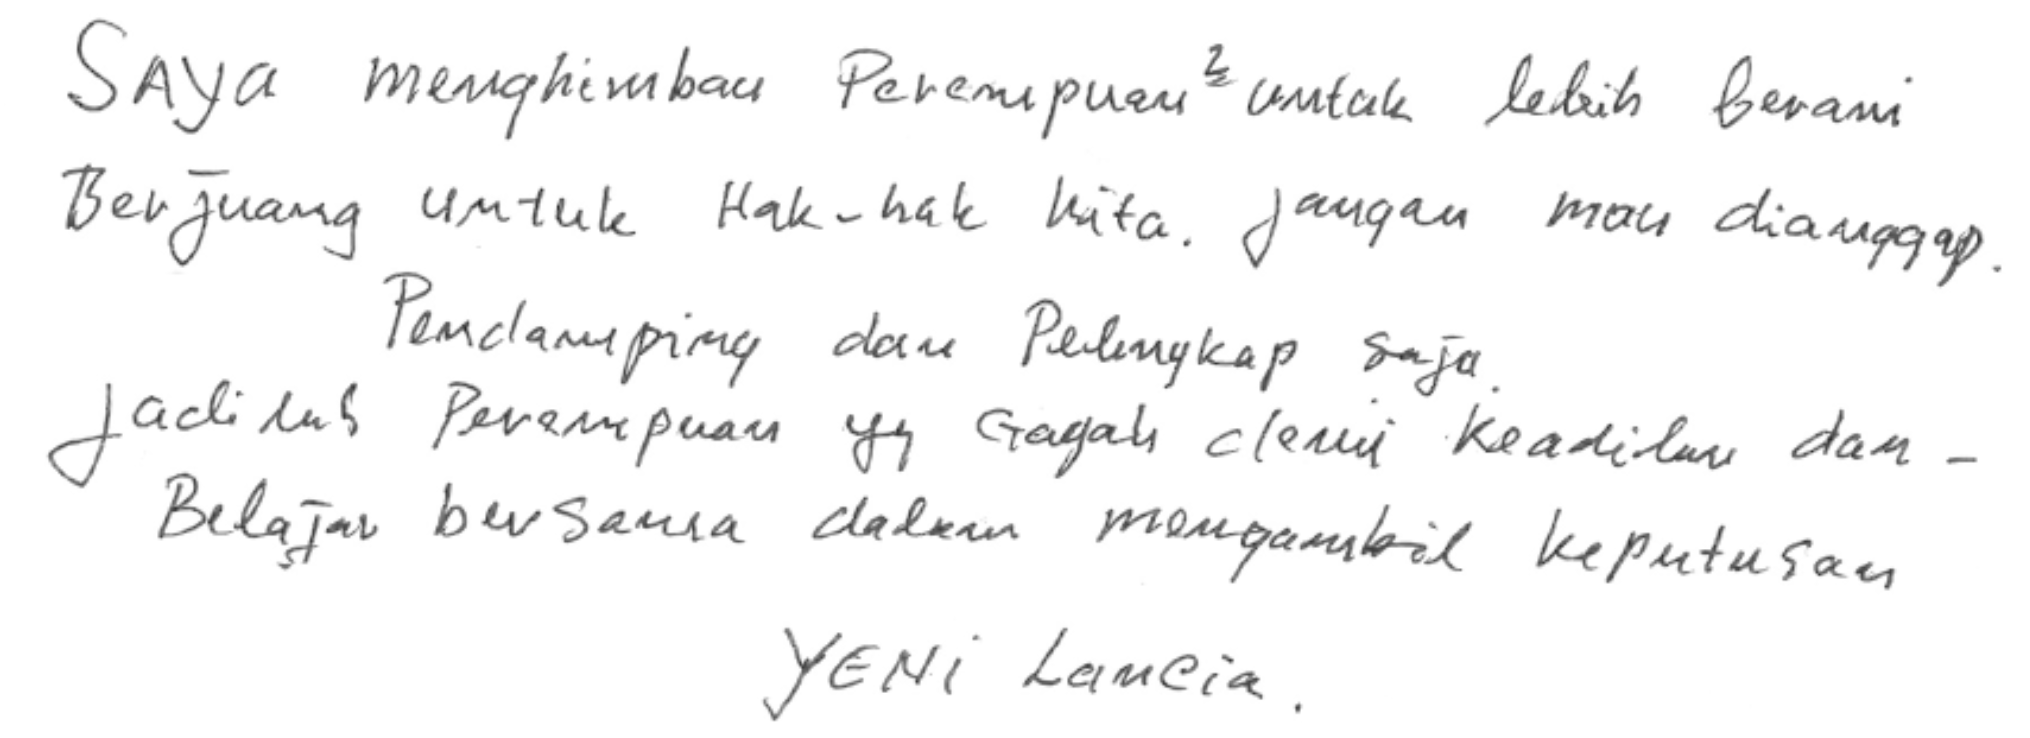 SAYA menghimbau Perempuan² untuk lebih berani
Berjuang untuk Hak-hak kita. Jangan mau dianggap.
Pendamping dan Pelengkap saja.
Jadilah Perempuan yg Gagah demi Keadilan dan -
Belajar bersama dalam mengambil keputusan
YENi Lancia.